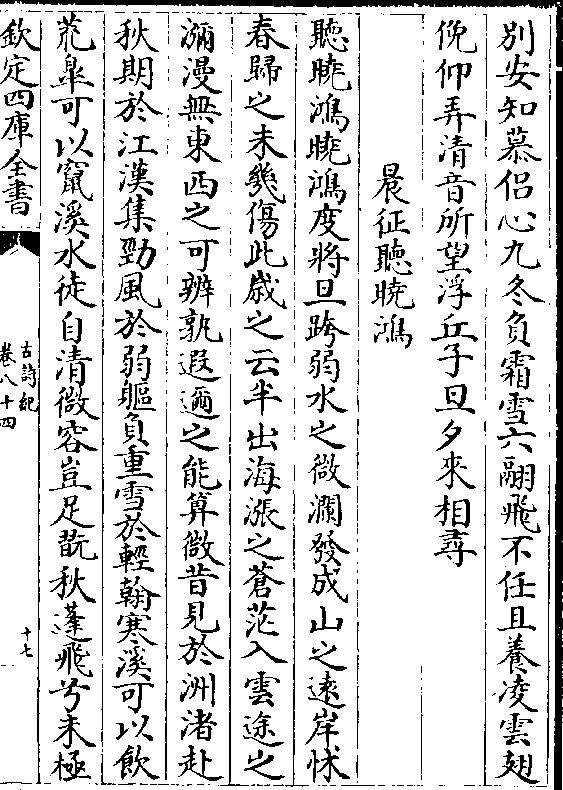 別安知慕侶心九冬負霜雪六翮飛不任且養凌雲翅
俛仰弄清音所望浮丘子旦夕來相尋
晨征聽曉鴻
聽曉鴻曉鴻度將旦跨弱水之微瀾發成山之遠岸怵
春歸之未幾傷此歳之云半出海漲之蒼茫入雲途之
瀰漫無東西之可辨孰遐邇之能算微昔見於洲渚赴
秋期於江漢集勁風於弱軀負重雪於輕翰寒溪可以飲
荒皐可以竄溪水徒自清微容豈足翫秋蓬飛兮未極
欽定四庫全書
古詩紀
卷八十四
十七